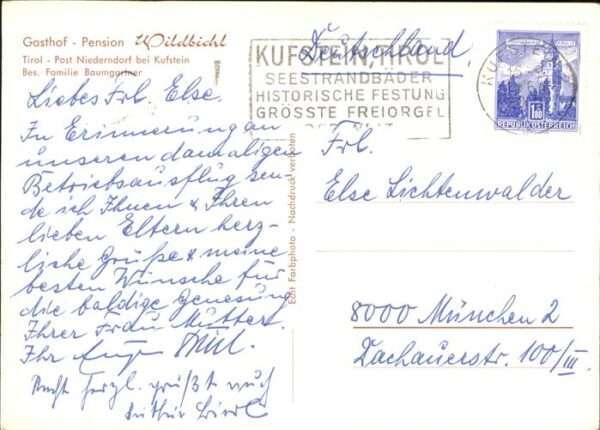 Gasthof - Pension Wildbichl
Tirol - Post Niederndorf bei Kufstein
Bes. Familie Baumgartner
Liebes Frl. Else.
In Erinnerung an
unseren damaligen
Betriebsausflug sen-
de ich Ihnen & Ihren
lieben Eltern herz-
liche Grüße & meine
besten Wünsche für
die baldige Genesung
Ihrer Frau Mutter.
Ihr Eugen
Recht herzl. grüßt auch
Echt Farbphoto - Nachdruck verboten
KUFSTEIN, TIROL
SEESTRANDBÄDER
HISTORISCHE FESTUNG
GRÖSSTE FREIORGEL
DER WELT
Deutschland.
KUFSTEIN
1.50
REPUBLIK ÖSTERREICH
Frl.
Else Lichtenwalder
8000 München 2
Dachauerstr. 100/III.